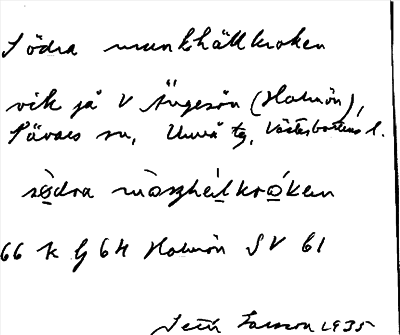 Södra munkhällkroken
vik på V Ängesön (Holmön),
Sävars sn, Umeå tg, Västerbottens l.
66 K g 64 Holmön SV 61
Larsson 1935